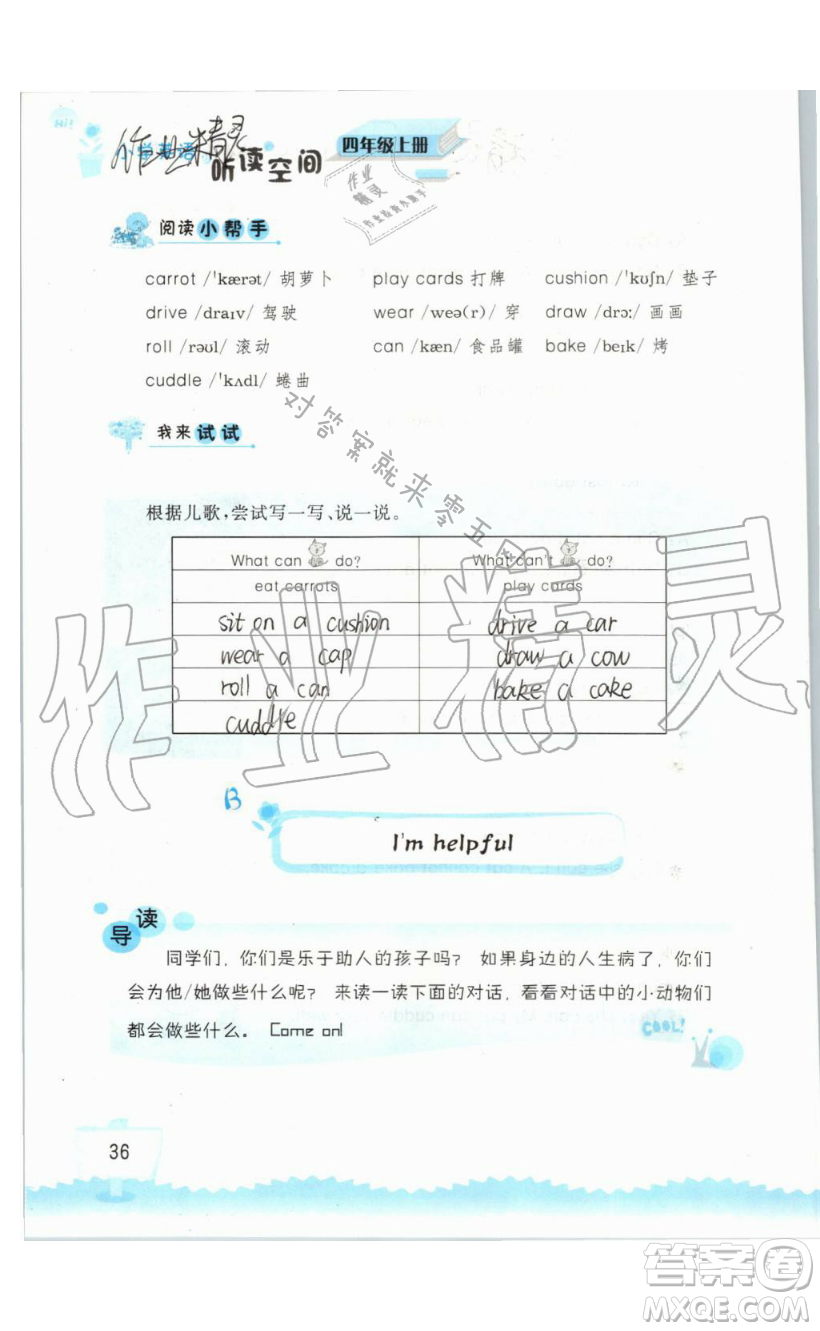 Hi!
小学英语
作业精灵
听读空间
四年级上册
作业
精灵
阅读小帮手
carrot /ˈkærət/ 胡萝卜 play cards 打牌 cushion /ˈkʊʃn/ 垫子
drive /draɪv/ 驾驶 wear /weə(r)/ 穿 draw /drɔː/ 画画
roll /rəʊl/ 滚动 can /kæn/ 食品罐 bake /beɪk/ 烤
cuddle /ˈkʌdl/ 蜷曲
对答案就来零五
我来试试
根据儿歌,尝试写一写、说一说。
What can do? What can't do?
eat carrots play cards
sit on a cushion drive a car
wear a cap draw a cow
roll a can bake a cake
cuddle
作业精灵
B
I'm helpful
导读
同学们,你们是乐于助人的孩子吗? 如果身边的人生病了,你们
会为他/她做些什么呢? 来读一读下面的对话,看看对话中的小动物们
都会做些什么。 Come on!
COOL!
36
答案圈
MXQE.COM